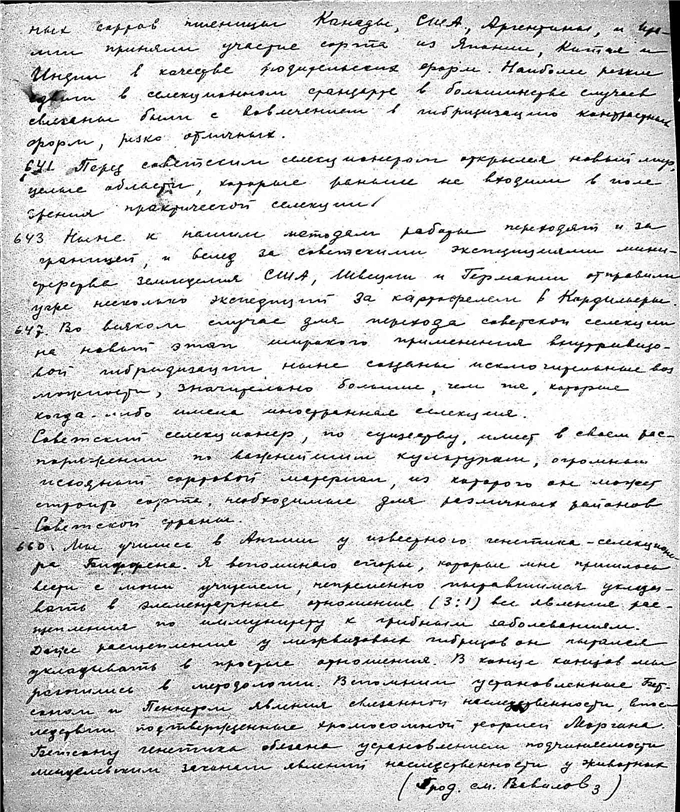 ных сортов пшеницы Канады, США, Аргентины, и
или приняли участие сорта из Японии, Китая и
Индии в качестве родительских форм Наиболее резкие
сдвиги в селекционном стандарте в большинстве случаев
связаны были с вовлечением в гибридизацию контрастных
форм, резко отличных.
641 Перед советским селекционером открылся новый мир,
целые области, которые раньше не входили в поле
зрения практической селекции.
643 Ныне к нашим методам работы переходят и за
границей, и вслед за советскими экспедициями мини-
стерства земледелия США, Швеции и Германии отправили
уже несколько экспедиций за картофелем в Кордильеры.
647. Во всяком случае для перехода советской селекции
на новый этап широкого применения внутривидо-
вой гибридизации ныне созданы исключительные воз
можности, значительно большие, чем те, которые
когда-либо имела иностранная селекция.
Советский селекционер, по существу, имеет в своем рас-
поряжении по важнейшим культурам, огромный
исходный сортовой материал, из которого он может
строить сорта, необходимые для различных районов
Советской страны.
660. Мы учились в Англии у известного генетика-селекционе-
ра Биффена. Я вспоминаю споры, которые мне пришлось
вести с моим учителем, непременно пытавшимся уклады-
вать в элементарные отношения (3:1) все явления рас-
щепления по иммунитету к грибным заболеваниям.
Даже расщепления у межвидовых гибридов он пытался
укладывать в простые отношения. В конце концов мы
разошлись в методологии. Вспомним установленные Бэт-
соном и Пеннетом явления связанной наследственности, впос
ледствии подтвержденные хромосомной теорией Моргана.
Бэтсону генетика обязана установлением подчиняемости
менделевским законам явлений наследственности у животных
(Прод. см. Вавилов 3)